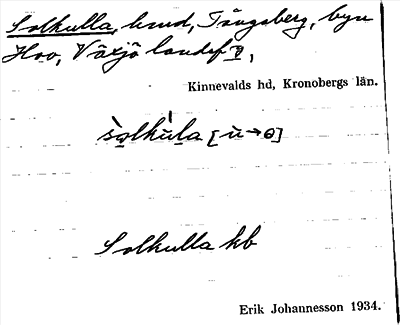 Solkulla, hmd, Tängsberg, byn
Hov, Växjö landsf V,
Kinnevalds hd, Kronobergs län.
sòlkùla [ù→ɵ]
Solkulla kb
Erik Johannesson 1934.